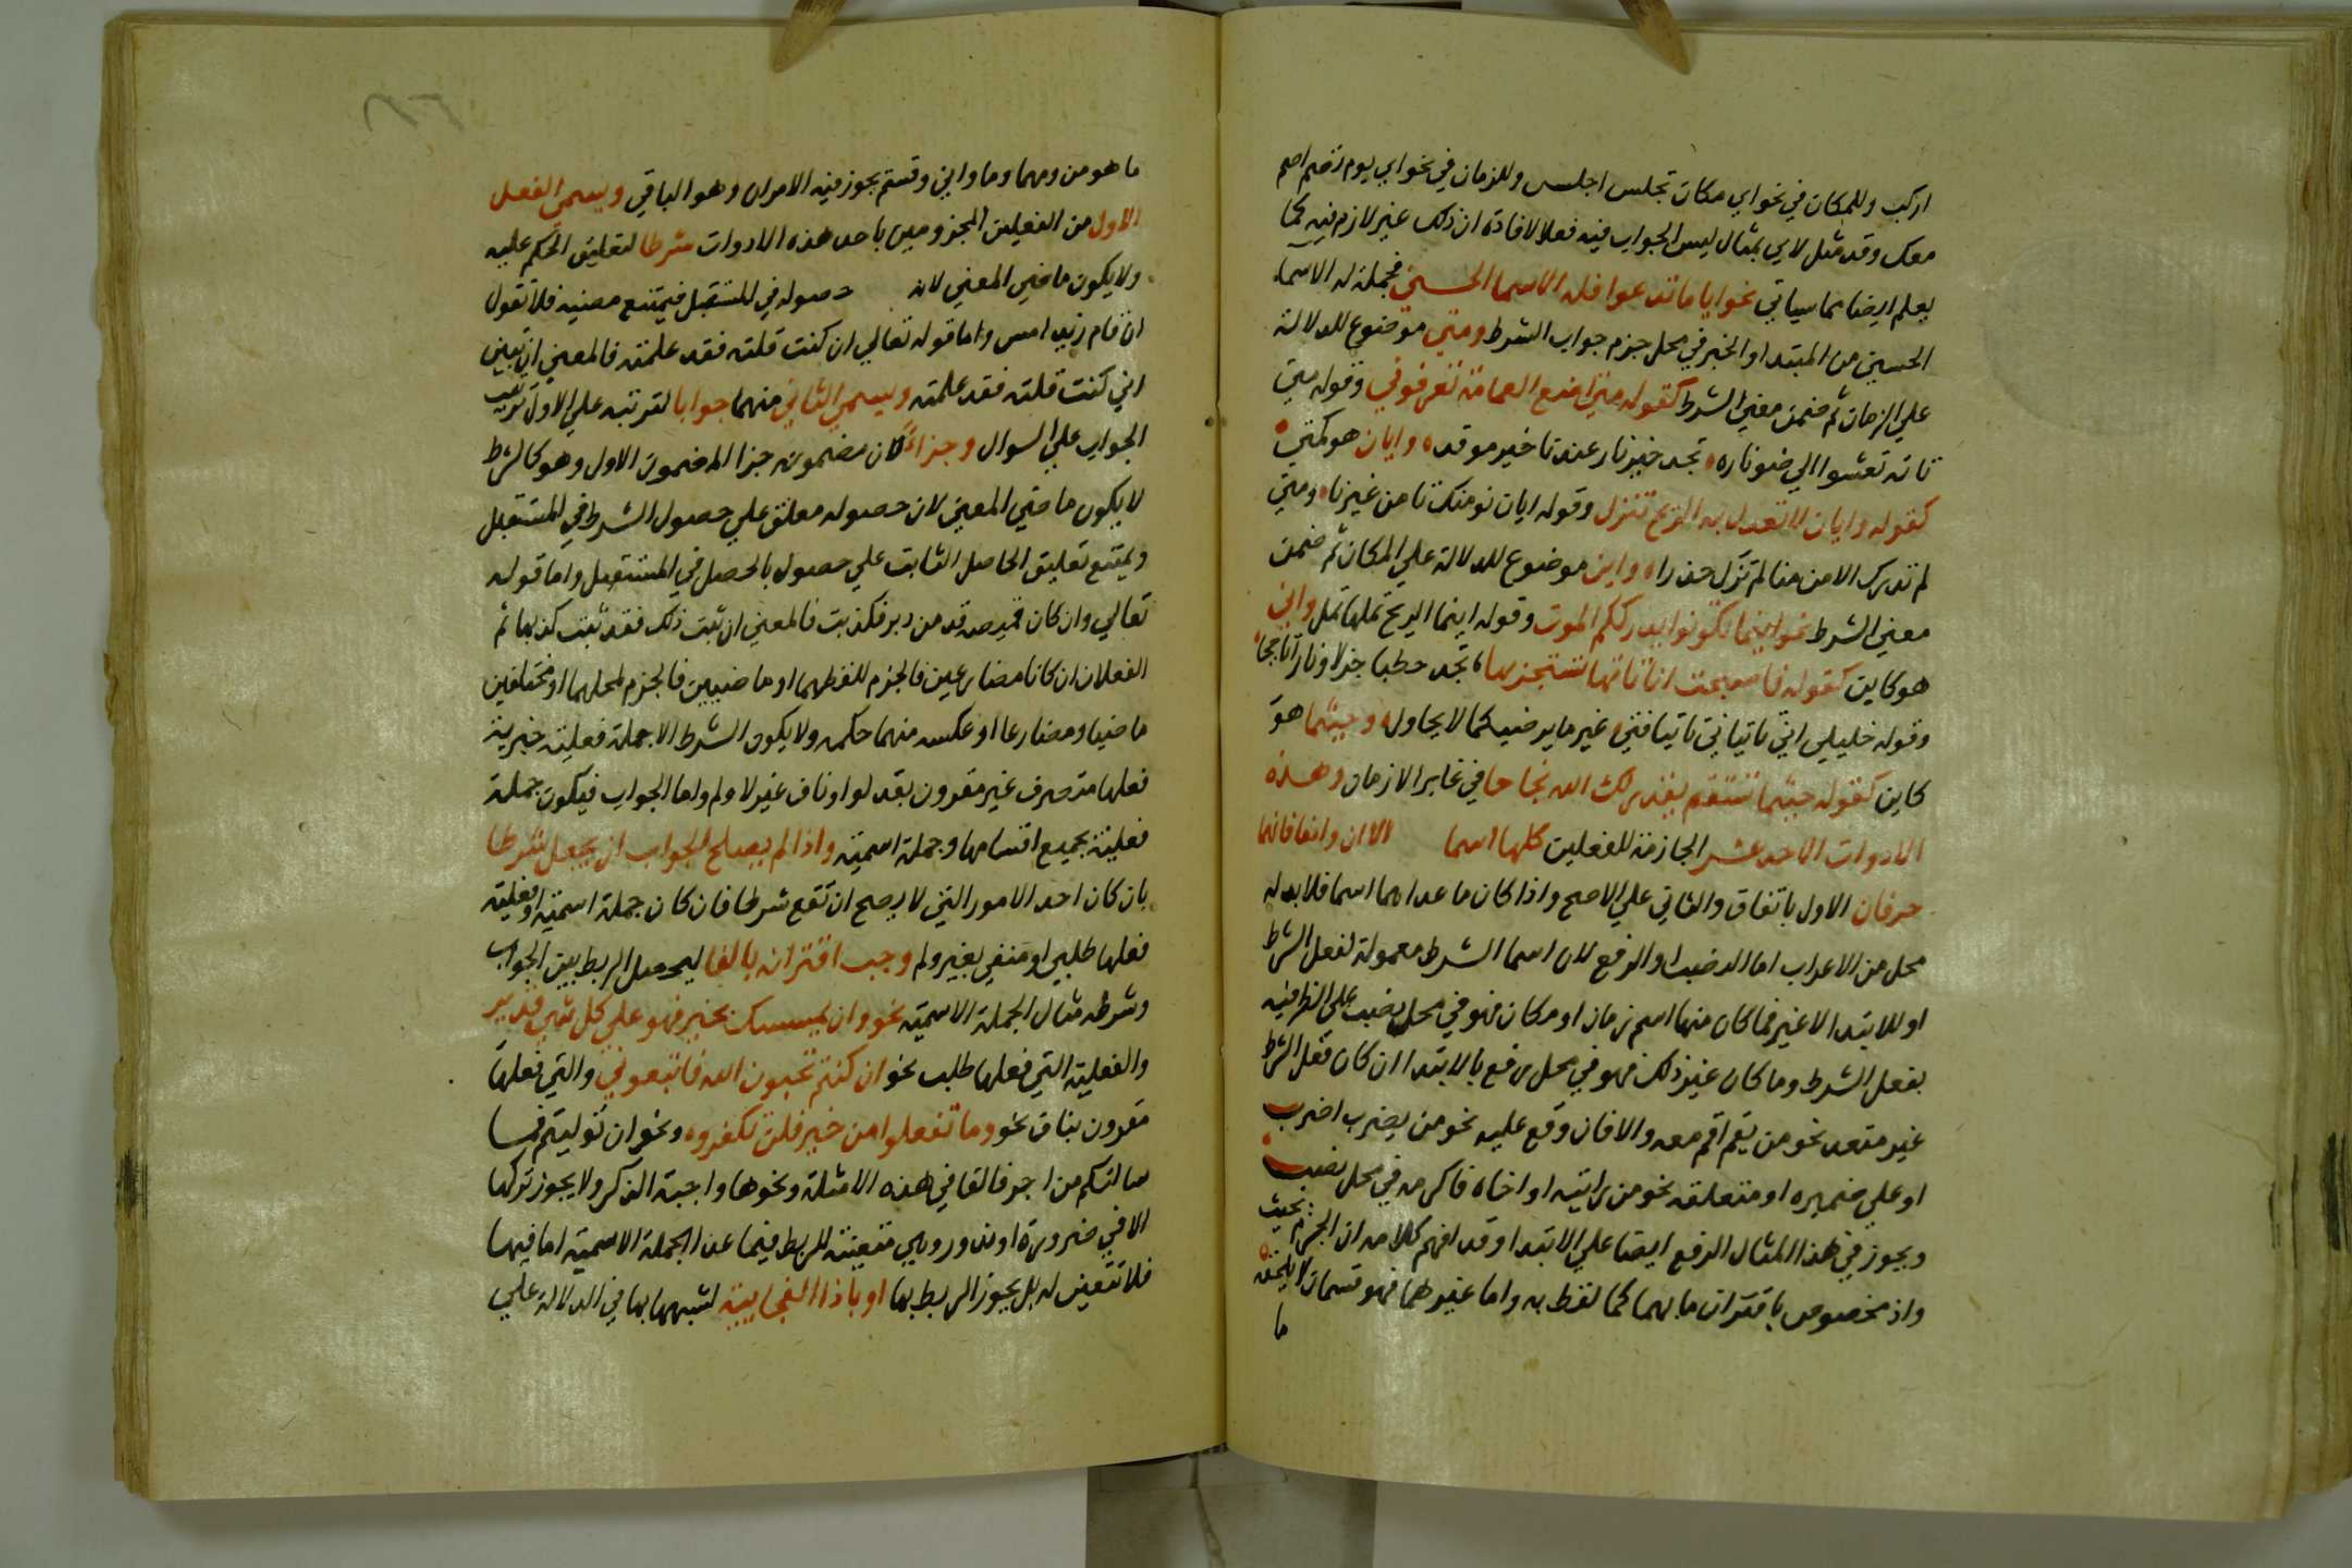 اركب وللمكان في نحو اي مكان تجلس اجلس وللزمان في نحو اي يوم تصم اصم
معك وقد مثل لاي بمثال ليس الجواب فيه فعلا لافادة ان ذلك غير لازم فيه كما
يعلم ايضا مما سياتي نحو ايا ما تدعوا فله الاسما الحسني فجملة له الاسماء
الحسني من المبتدا والخبر في محل جزم جواب الشرط ومتي موضوع للدلالة
علي الزمان ثم ضمن معني الشرط كقوله متي اضع العمامة تعرفوني وقوله متي
تاته تعشوا الي ضو ناره تجد خير نار عندنا خير موقد وايان هو كمتي
كقوله وايان لا تعدل به الريح تنزل وقوله ايان نومنك تامن غيرنا ومتي
لم تدرك الامن منا لم تزل حذرا واين موضوع للدلالة علي المكان ثم ضمن
معني الشرط نحو اينما تكونوا يدرككم الموت وقوله اينما الريح تملها تمل واني
هو كاين كقوله فاصبحت اني تاتها تستجر بها تجد حطبا جزلا ونارا تاججا
وقوله خليلي اني تاتياني تاتيا فتي غير ما يرضيكما لا يحاول وحيثما هو
كاين كقوله حيثما تستقم يقدر لك الله نجاحا في غابر الازمان وهذه
الادوات الاحد عشر الجازمة للفعلين كلها اسما الا ان واذما فانهما
حرفان الاول باتفاق والثاني علي الاصح واذا كان ما عداهما اسما فلا بد له
محل من الاعراب اما النصب او الرفع لان اسما الشرط معمولة لفعل الشرط
او للابتدا لا غير فما كان منها اسم زمان او مكان فهو في محل نصب علي الظرفيه
بفعل الشرط وما كان غير ذلك فهو في محل رفع بالابتدا ان كان فعل الشرط
غير متعد نحو من يقم اقم معه والا فان وقع عليه نحو من يضرب اضرب
او علي ضميره او متعلقه نحو من رايته او اخاه فاكرمه في محل نصب
ويجوز في هذا المثال الرفع ايضا علي الابتدا وقد افهم كلامه ان الجزم بحيث
واذ مخصوص باقتران ما بهما كما لفظ به واما غيرهما فهو قسمان لا يلحقه
ما
ما هو من ومهما وما واني وقسم يجوز فيه الامران وهو الباقي ويسمي الفعل
الاول من الفعلين المجزومين باحد هذه الادوات شرطا لتعليق الحكم عليه
ولا يكون ماضي المعني لانه حصوله في المستقبل فيمتنع مضيه فلا تقول
ان قام زيد امس واما قوله تعالي ان كنت قلته فقد علمته فالمعني ان تبين
اني كنت قلته فقد علمته ويسمي الثاني منهما جوابا لترتبه علي الاول ترتب
الجواب علي السوال وجزاء لان مضمونه جزا المضمون الاول وهو كالشرط
لا يكون ماضي المعني لان حصوله معلق علي حصول الشرط في المستقبل
ويمتنع تعليق الحاصل الثابت علي حصول ما يحصل في المستقبل واما قوله
تعالي وان كان قميصه قد من دبر فكذبت فالمعني ان ثبت ذلك فقد ثبت كذبها ثم
الفعلان ان كانا مضارعين فالجزم للفظهما او ماضيين فالجزم لمحلهما او مختلفين
ماضيا ومضارعا او عكسه منهما حكمه ولا يكون الشرط الا جملة فعلية خبرية
فعلها متصرف غير مقرون بقد لو او ناف غير لا ولم واما الجواب فيكون جملة
فعلية بجميع اقسامها وجملة اسمية واذا لم يصلح الجواب ان يجعل شرطا
بان كان احد الامور التي لا يصح ان تقع شرطا فان كان جملة اسمية او فعلية
فعلها طلبي او منفي بغير ولم وجب اقترانه بالفا ليحصل الربط بين الجواب
وشرطه مثال الجملة الاسمية نحو وان يمسسك بخير فهو علي كل شي قدير
والفعلية التي فعلها طلب نحو ان كنتم تحبون الله فاتبعوني والتي فعلها
مقرون بناف نحو وما تفعلوا من خير فلن تكفروه ونحو ان توليتم فما
سالتكم من اجر فالفا في هذه الامثلة ونحوها واجبة الذكر ولا يجوز تركها
الا في ضرورة او ندور وهي متعينة للربط فيما عدا الجملة الاسمية اما فيها
فلا تتعين له بل يجوز الربط بها او باذا الفجاييه لشبهها بها في الدلالة علي